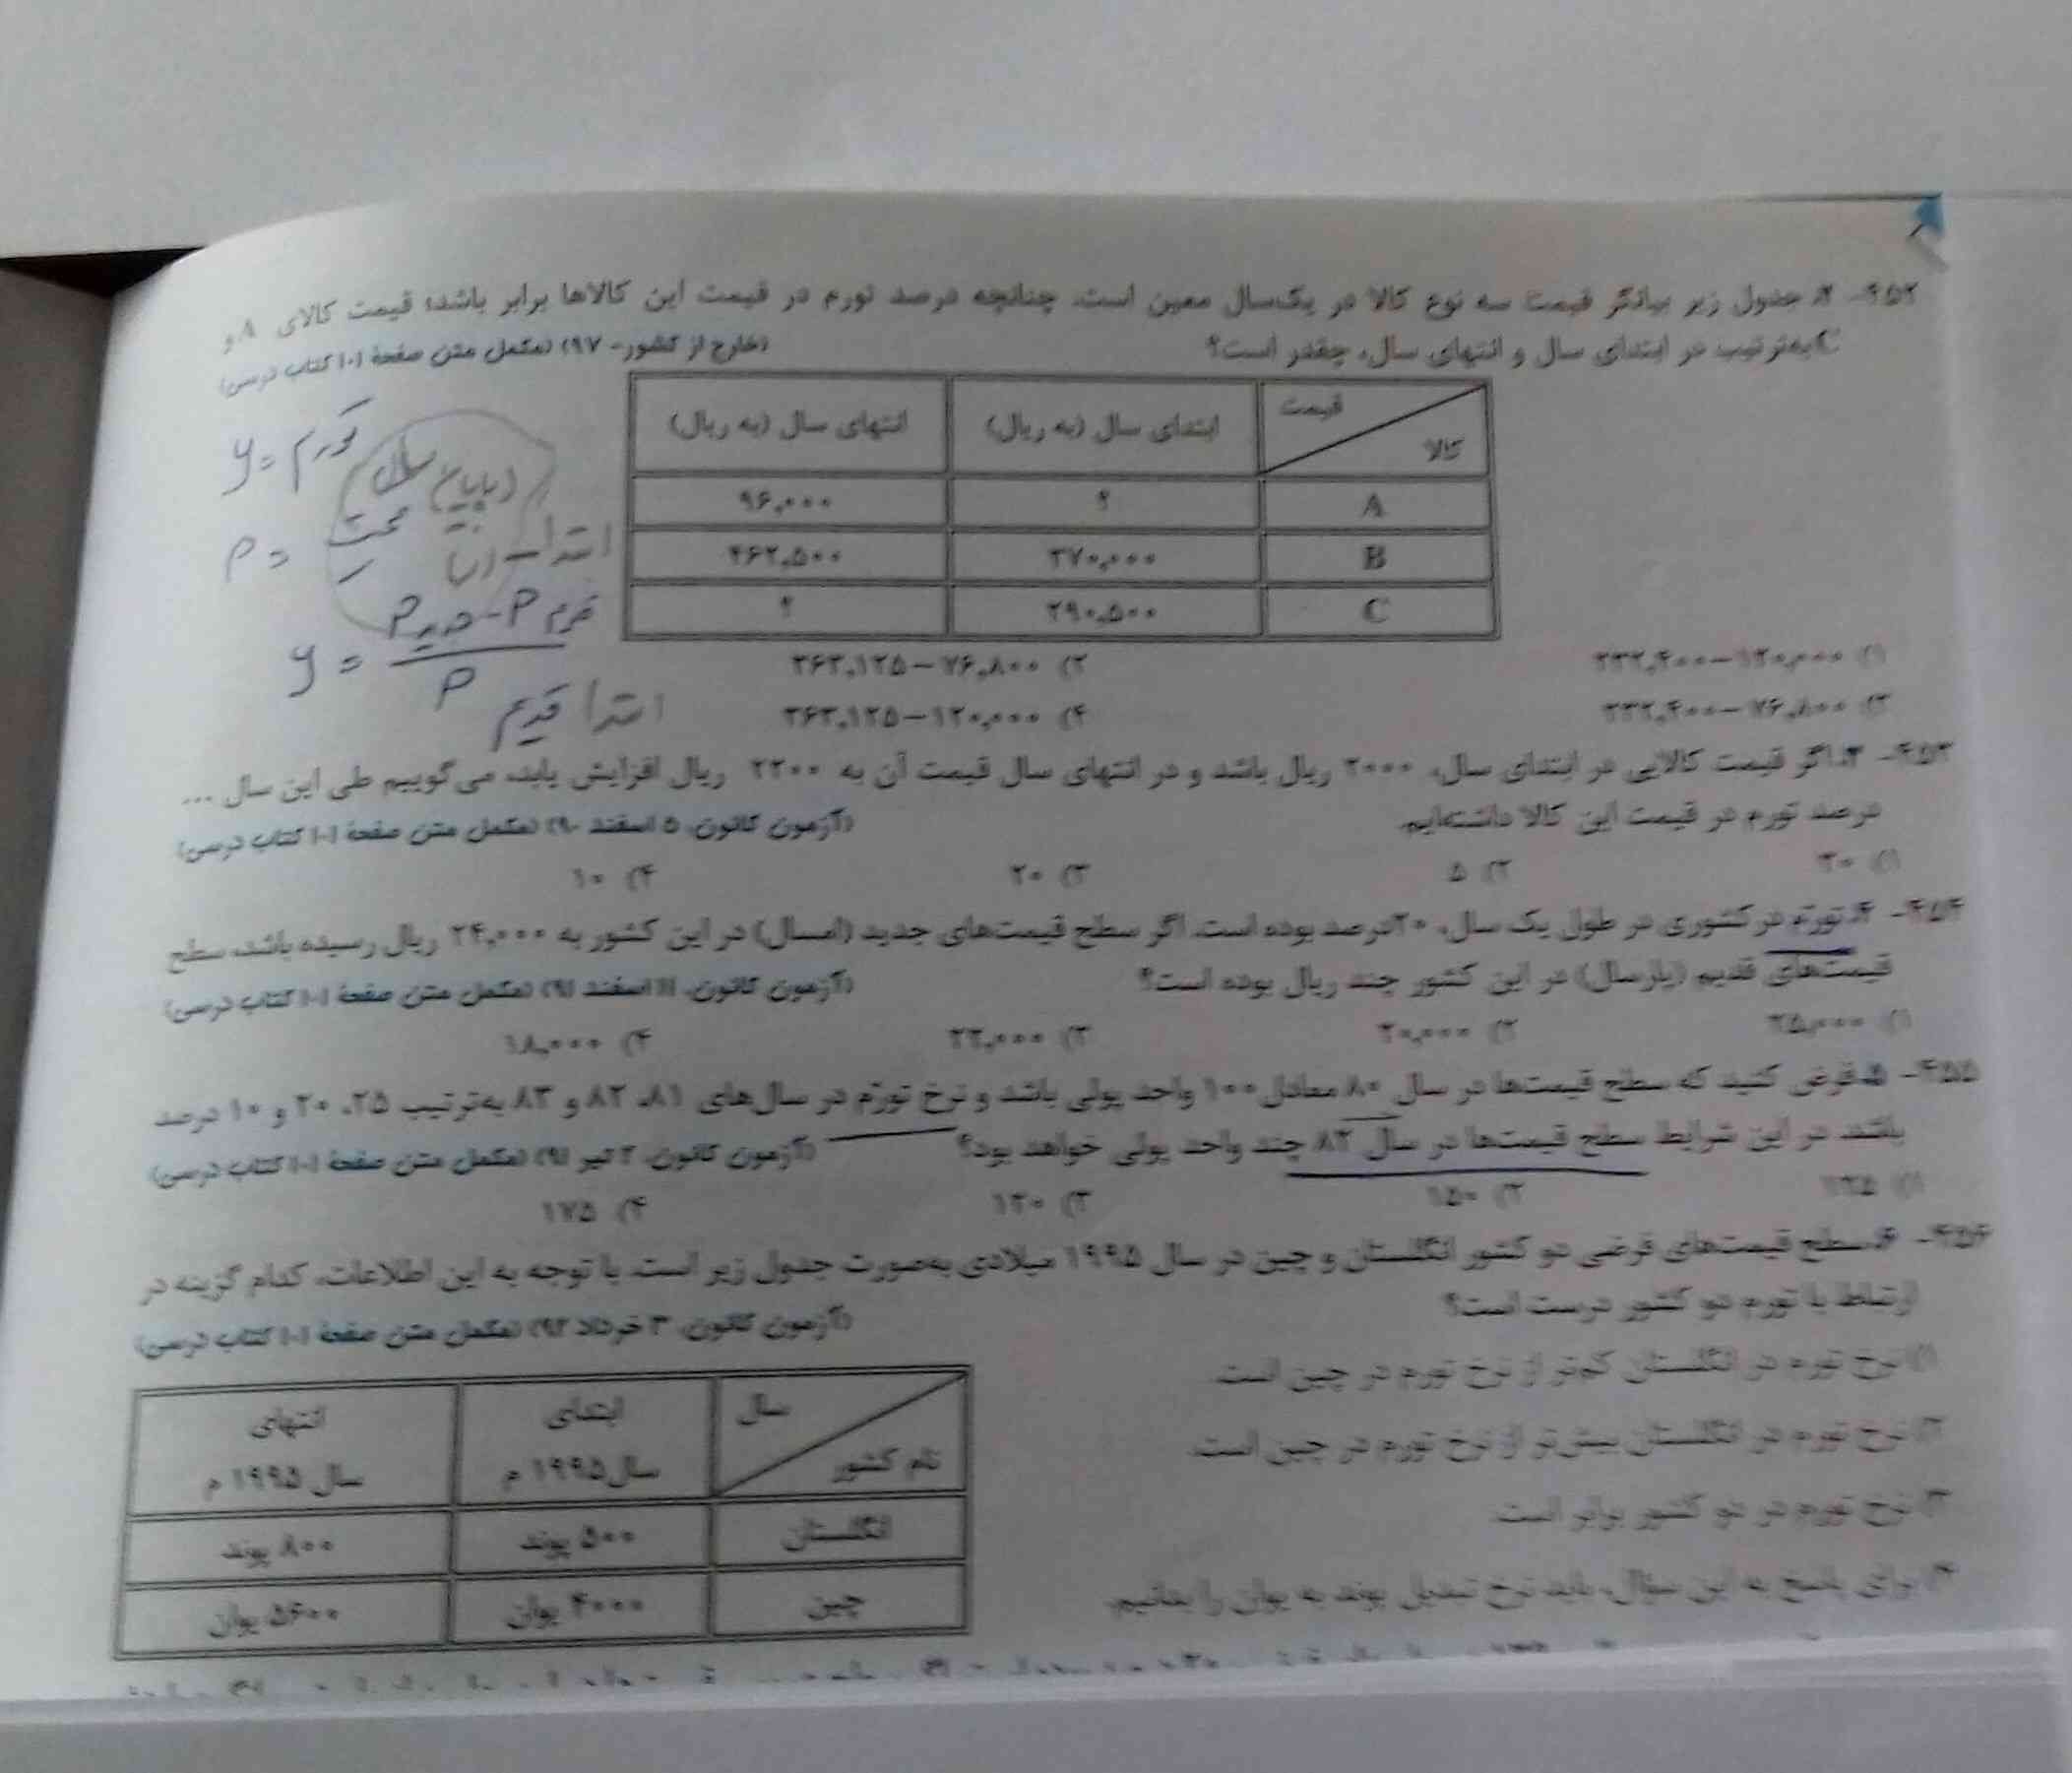 ۴۵۲- ۲. جدول زیر بیانگر قیمت سه نوع کالا در یک‌سال معین است. چنانچه درصد تورم در قیمت این کالاها برابر باشد؛ قیمت کالای A و
C به‌ترتیب در ابتدای سال و انتهای سال، چقدر است؟ (خارج از کشور- ۹۷) (مکمل متن صفحهٔ ۱۰۱ کتاب درسی)
قیمت
کالا ابتدای سال (به ریال) انتهای سال (به ریال)
A ؟ ۹۶,۰۰۰
B ۳۷۰,۰۰۰ ۴۶۲,۵۰۰
C ۲۹۰,۵۰۰ ؟
تورم = y
P =
ابتدا
y = P جدید - P قدیم
P
ابتدا قدیم
۱) ۱۲۰,۰۰۰-۳۳۲,۴۰۰ ۲) ۷۶,۸۰۰-۳۶۳,۱۲۵
۳) ۷۶,۸۰۰-۳۳۲,۴۰۰ ۴) ۱۲۰,۰۰۰-۳۶۳,۱۲۵
۴۵۳- ۳. اگر قیمت کالایی در ابتدای سال، ۲۰۰۰ ریال باشد و در انتهای سال قیمت آن به ۲۲۰۰ ریال افزایش یابد، می‌گوییم طی این سال ...
درصد تورم در قیمت این کالا داشته‌ایم. (آزمون کانون، ۵ اسفند ۹۰) (مکمل متن صفحهٔ ۱۰۱ کتاب درسی)
۱) ۳۰ ۲) ۵ ۳) ۲۰ ۴) ۱۰
۴۵۴- ۴. تورم در کشوری در طول یک سال، ۲۰درصد بوده است. اگر سطح قیمت‌های جدید (امسال) در این کشور به ۲۴,۰۰۰ ریال رسیده باشد، سطح
قیمت‌های قدیم (پارسال) در این کشور چند ریال بوده است؟ (آزمون کانون، ۱۱ اسفند ۹۱) (مکمل متن صفحهٔ ۱۰۱ کتاب درسی)
۱) ۲۵,۰۰۰ ۲) ۲۰,۰۰۰ ۳) ۲۲,۰۰۰ ۴) ۱۸,۰۰۰
۴۵۵- ۵. فرض کنید که سطح قیمت‌ها در سال ۸۰ معادل ۱۰۰ واحد پولی باشد و نرخ تورّم در سال‌های ۸۱، ۸۲ و ۸۳ به‌ترتیب ۲۵، ۲۰ و ۱۰ درصد
باشد. در این شرایط سطح قیمت‌ها در سال ۸۲ چند واحد پولی خواهد بود؟ (آزمون کانون، ۲ تیر ۹۱) (مکمل متن صفحهٔ ۱۰۱ کتاب درسی)
۱) ۱۲۵ ۲) ۱۵۰ ۳) ۱۳۰ ۴) ۱۷۵
۴۵۶- ۶. سطح قیمت‌های فرضی دو کشور انگلستان و چین در سال ۱۹۹۵ میلادی به‌صورت جدول زیر است. با توجه به این اطلاعات، کدام گزینه در
ارتباط با تورم دو کشور درست است؟ (آزمون کانون، ۳ خرداد ۹۲) (مکمل متن صفحهٔ ۱۰۱ کتاب درسی)
۱) نرخ تورم در انگلستان کم‌تر از نرخ تورم در چین است.
۲) نرخ تورم در انگلستان بیش‌تر از نرخ تورم در چین است.
۳) نرخ تورم در دو کشور برابر است.
۴) برای پاسخ به این سؤال، باید نرخ تبدیل پوند به یوان را بدانیم.
سال
نام کشور ابتدای سال ۱۹۹۵ م انتهای سال ۱۹۹۵ م
انگلستان ۵۰۰ پوند ۸۰۰ پوند
چین ۴۰۰۰ یوان ۵۶۰۰ یوان